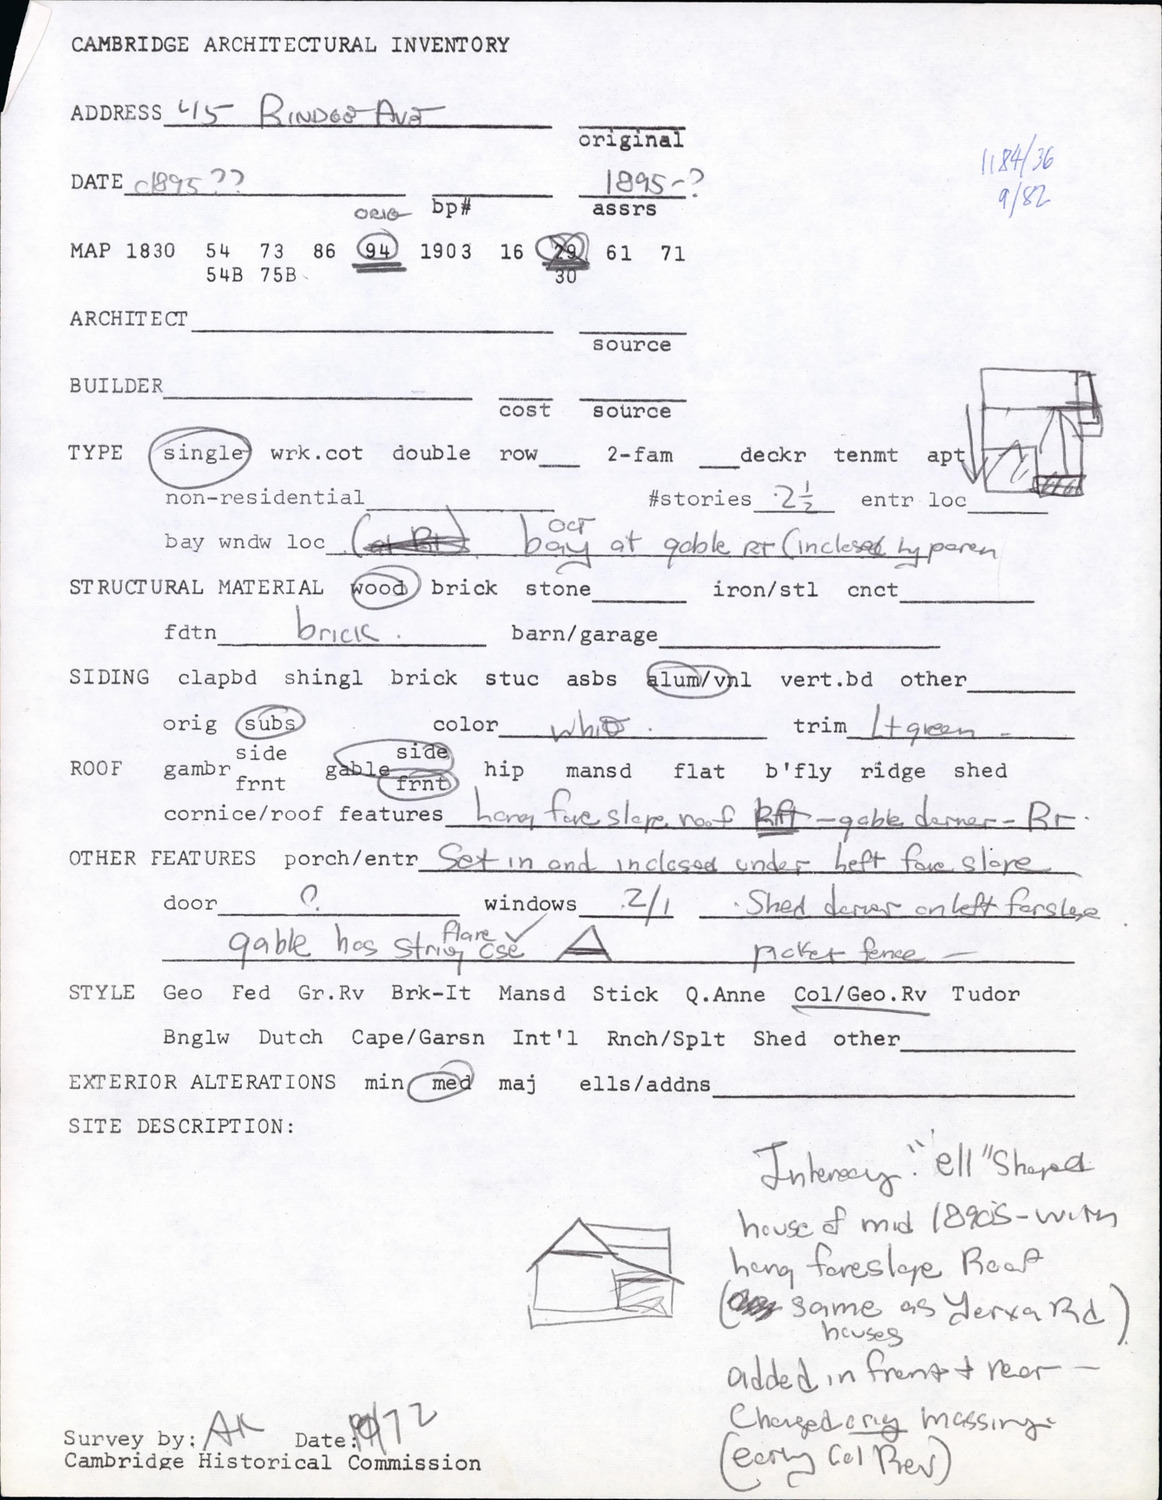 CAMBRIDGE ARCHITECTURAL INVENTORY
ADDRESS 45 RINDGE AVE
original
1184/36
9/82
DATE c1895 ?? 1895-?
ORIG bp# assrs
MAP 1830 54 73 86 94 1903 16 29 61 71
54B 75B 30
ARCHITECT
source
BUILDER
cost source
TYPE single wrk.cot double row 2-fam deckr tenmt apt
non-residential #stories 2½ entr loc
oct
bay wndw loc bay at gable RT (inclosed by
STRUCTURAL MATERIAL wood brick stone iron/stl cnct
fdtn brick. barn/garage
SIDING clapbd shingl brick stuc asbs alum/vnl vert.bd other
orig subs color white. trim Lt green -
side side
ROOF gambr gable hip mansd flat b'fly ridge shed
frnt frnt
cornice/roof features long fore slope roof left - gable dormer - Rr.
OTHER FEATURES porch/entr Set in and inclosed under left fore slope
door ? windows 2/1 Shed dormer on left forslope
flare
gable has string cse picket fence -
STYLE Geo Fed Gr.Rv Brk-It Mansd Stick Q.Anne Col/Geo.Rv Tudor
Bnglw Dutch Cape/Garsn Int'l Rnch/Splt Shed other
EXTERIOR ALTERATIONS min med maj ells/addns
SITE DESCRIPTION:
"ell" Shaped
house of mid 1890's - with
long foreslope Roof
( same as Yerxa Rd )
houses
added in front + rear -
Changed orig massing.
(early Col Rev)
Survey by: AK Date: /72
Cambridge Historical Commission